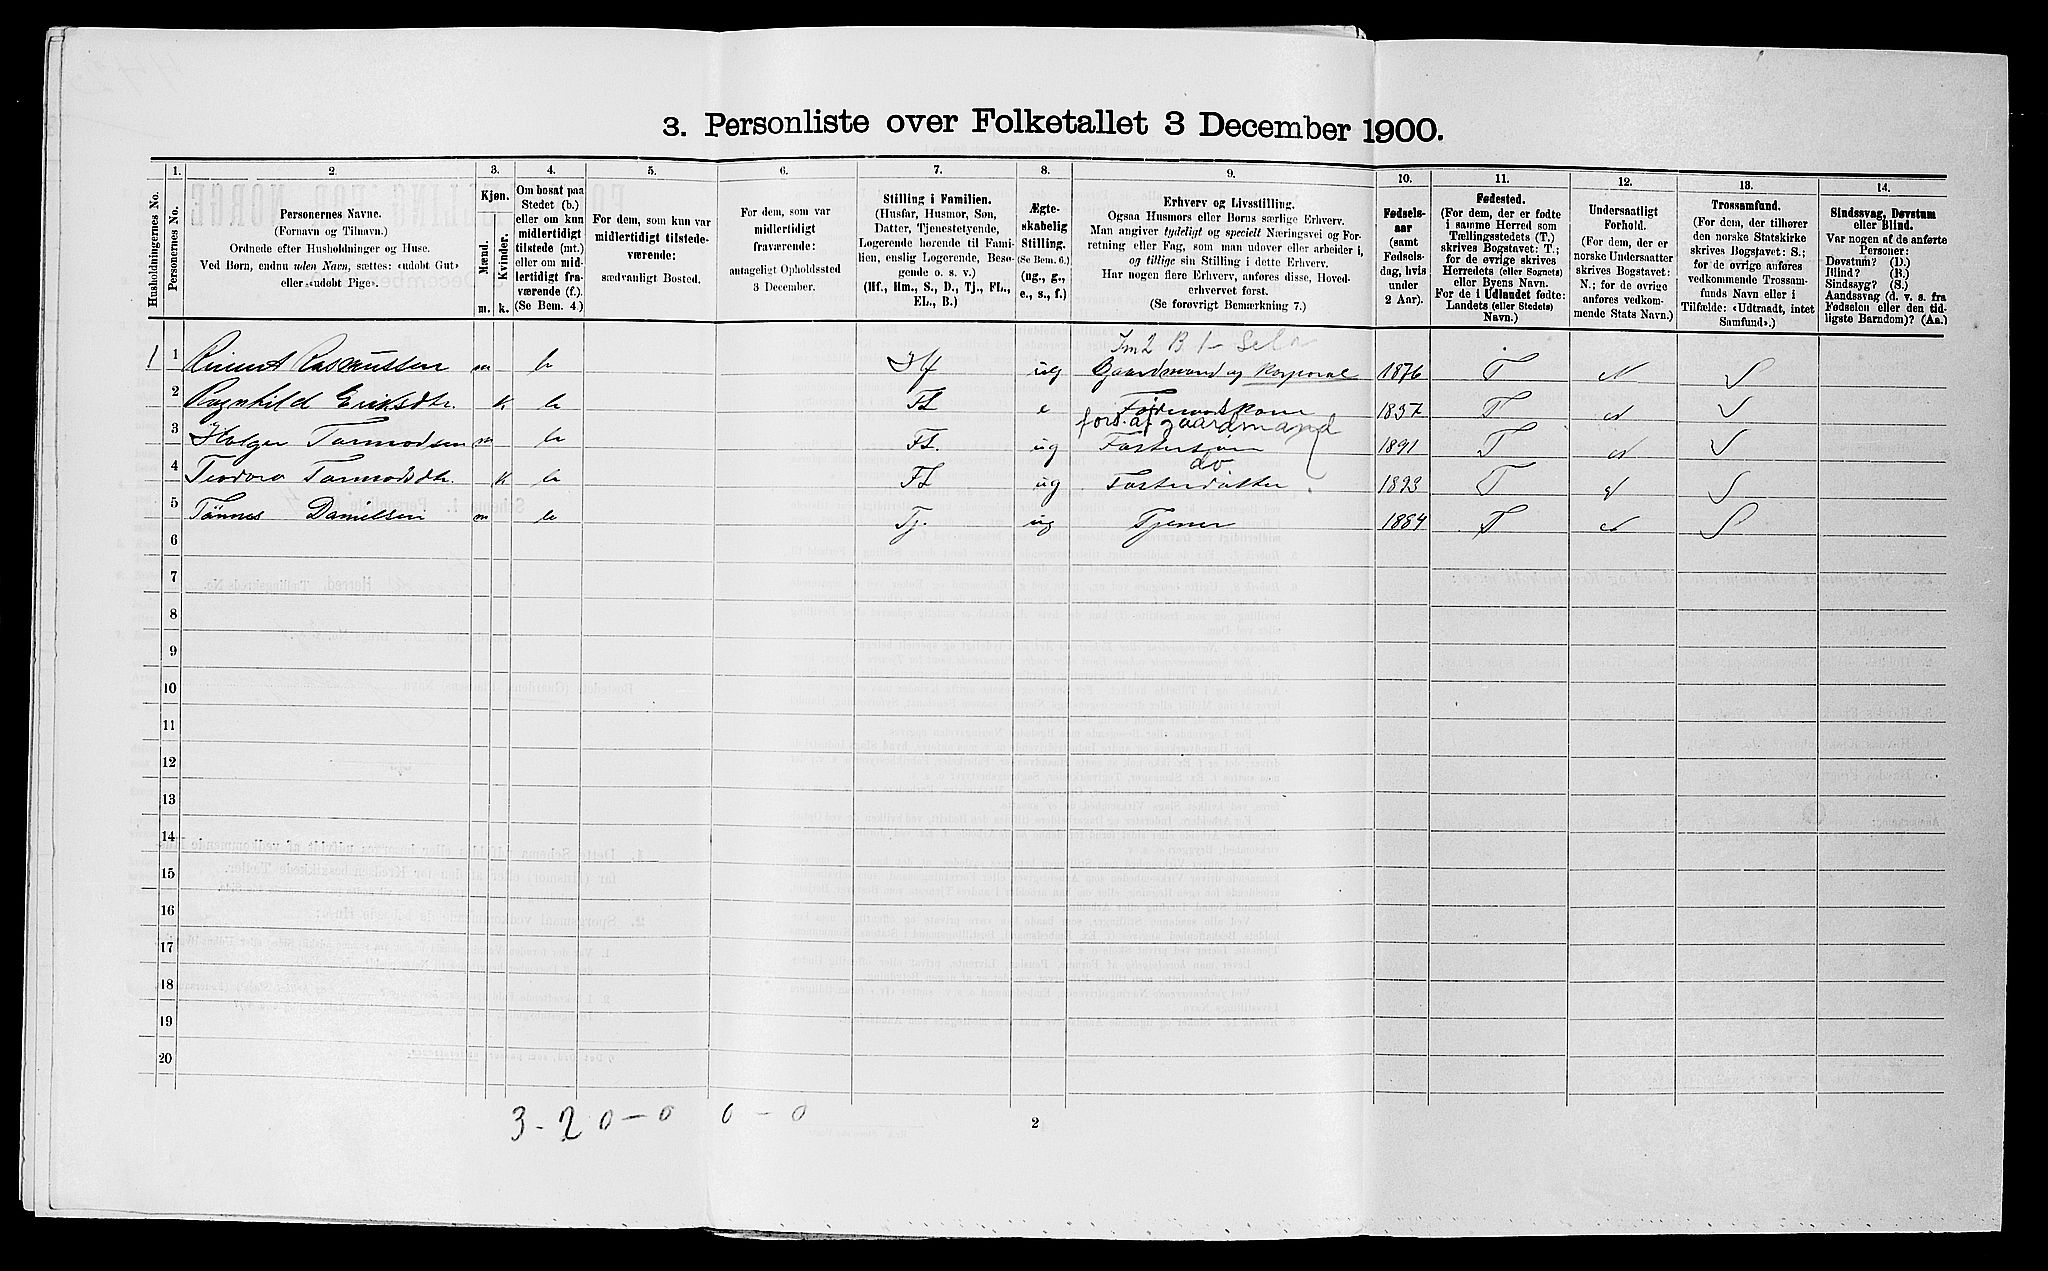 3. Personliste over Folketallet 3 December 1900.
Husholdningernes No.
1.
Personernes No.
2.
Personernes Navne.
(Fornavn og Tilnavn.)
Ordnede efter Husholdninger og Huse.
Ved Børn, endnu uden Navn, sættes: «udøbt Gut»
eller «udøbt Pige».
3.
Kjøn.
Mænd.
Kvinder.
m. k.
4.
Om bosat paa
Stedet (b.)
eller om kun
midlertidigt
tilstede (mt.)
eller om mid-
lertidigt fra-
værende (f.).
(Se Bem. 4.)
5.
For dem, som kun var
midlertidigt tilstede-
værende:
sædvanligt Bosted.
6.
For dem, som var
midlertidigt
fraværende:
antageligt Opholdssted
3 December.
7.
Stilling i Familien.
(Husfar, Husmor, Søn,
Datter, Tjenestetyende,
Logerende hørende til Fami-
lien, enslig Logerende, Besø-
gende o. s. v.)
(Hf., Hm., S., D., Tj., FL.,
EL., B.)
8.
Ægte-
skabelig
Stilling.
(Se Bem. 6.)
(ug., g.,
e., s., f.)
9.
Erhverv og Livsstilling.
Ogsaa Husmors eller Børns særlige Erhverv.
Man angiver tydeligt og specielt Næringsvei og For-
retning eller Fag, som man udover eller arbeider i,
og tillige sin Stilling i dette Erhverv.
Har nogen flere Erhverv, anføres disse, Hoved-
erhvervet først.
(Se forøvrigt Bemærkning 7.)
10.
Fødsels-
aar
(samt
Fødsels-
dag, hvis
under
2 Aar).
11.
Fødested.
(For dem, der er fødte
i samme Herred som
Tællingsstedets (T.)
skrives Bogstavet: T.;
for de øvrige skrives
Herredets (eller Sognets)
eller Byens Navn.
For de i Udlandet fødte:
Landets (eller Stedets)
Navn.)
12.
Undersaatligt
Forhold.
(For dem, der er
norske Undersaatter
skrives Bogstavet:
N.; for de øvrige
anføres vedkom-
mende Stats Navn.)
13.
Trossamfund.
(For dem, der tilhører
den norske Statskirke
skrives Bogstavet: S.;
for de øvrige anføres
vedkommende Trossam-
funds Navn eller i
Tilfælde: «Udtraadt, intet
Samfund».)
14.
Sindssvag, Døvstum
eller Blind.
Var nogen af de anførte
Personer:
Døvstum? (D.)
Blind? (B.)
Sindssyg? (S.)
Aandssvag (d. v. s. fra
Fødselen eller den tid-
ligste Barndom)? (Aa.)
1 1 Rasmussen m b Hf ug Gaardmand og Korporal 1876 T N S
2 Ragnhild Eriksdtr. k b FL e 1837 T N S
fors. af gaardmand
3 Holger Tarmodsen m b FL. ug Fostersøn 1891 T N S
do
4 Teodora Tarmodsdtr. k b FL ug Fosterdatter 1893 T N S
5 Tønnes Danielsen m b Tj. ug Tjener 1884 T N S
6
7
8
9
10
11
12
13
14
15
16
17
18
19
20
3 - 2 0 - 0 0 - 0
2